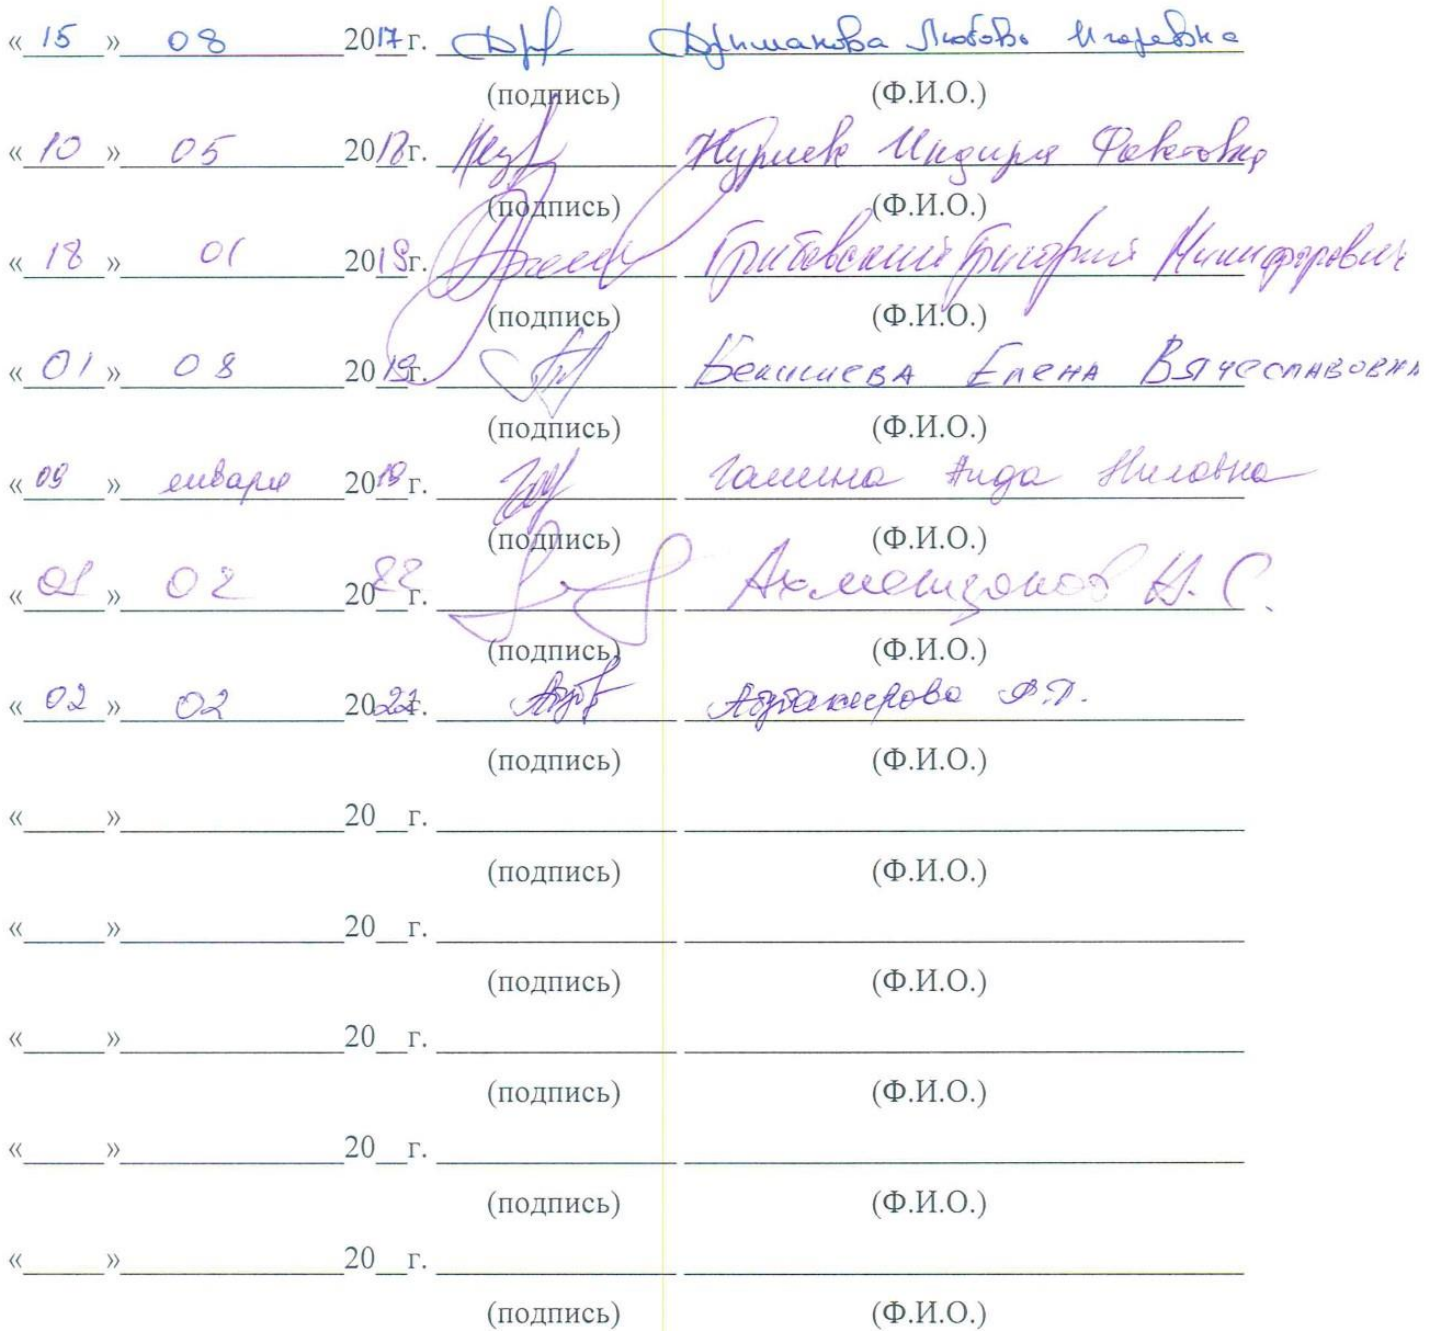 « 15 » 08 2017 г. Любовь Игоревна
(подпись) (Ф.И.О.)
« 10 » 05 2018г. Индира
(подпись) (Ф.И.О.)
« 18 » 01 2019г. Григорий Никифорович
(подпись) (Ф.И.О.)
« 01 » 08 2019г. Елена Вячеславовна
(подпись) (Ф.И.О.)
« 09 » января 2019 г. Аида Ниловна
(подпись) (Ф.И.О.)
« 01 » 02 2022 г. Ахметзянов И. С.
(подпись) (Ф.И.О.)
« 02 » 02 2022г.
(подпись) (Ф.И.О.)
«____»________20__г.
(подпись) (Ф.И.О.)
«____»________20__г.
(подпись) (Ф.И.О.)
«____»________20__г.
(подпись) (Ф.И.О.)
«____»________20__г.
(подпись) (Ф.И.О.)
«____»________20__г.
(подпись) (Ф.И.О.)